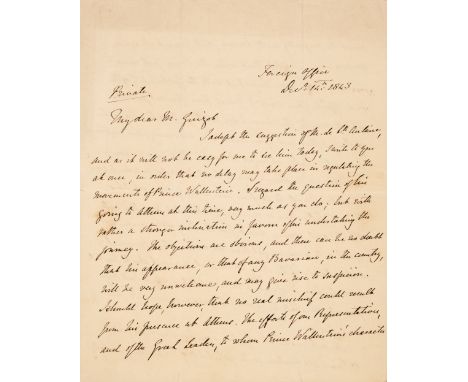 Foreign Office
Decr. 14th. 1843
Private.
My dear M. Guizot
I adopt the suggestion of M. de Ste Aulaire,
and as it will not be easy for me to see him today, I write to you
at once, in order that no delay may take place in regulating the
movements of Prince Wallerstein. I regard the question of his
going to Athens at this time, very much as you do; but with
rather a stronger inclination in favour of his undertaking the
journey. The objections are obvious, and there can be no doubt
that his appearance, or that of any Bavarian, in the country,
will be very unwelcome, and may give rise to suspicion.
I should hope, however, that no real mischief could result
from his presence at Athens. The efforts of our Representatives,
and of the Greek Leaders, to whom Prince Wallerstein's character